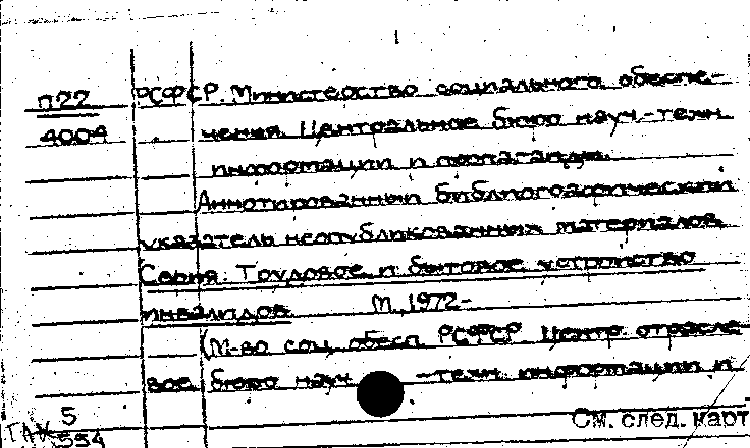 П22 РСФСР. Министерство социального обеспе-
4004 чения. Центральное бюро науч.-техн.
информации и пропаганды.
Аннотированный библиографический
указатель неопубликованных материалов.
Серия: Трудовое и бытовое устройство
инвалидов. М., 1972-
(М-во соц. обесп. РСФСР. Центр. отрасле-
вое бюро науч.-техн. информации и
5
554
См. след. карт